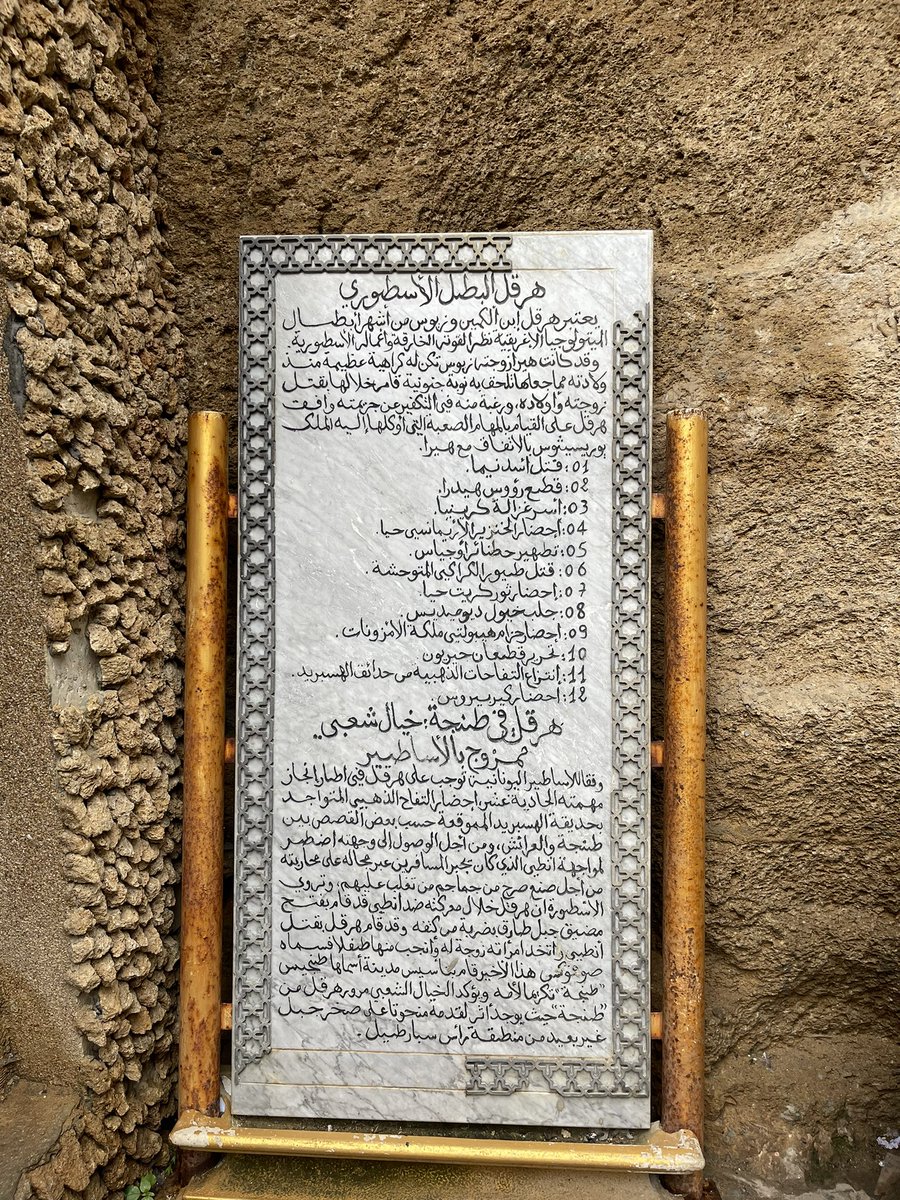 هرقل البطل الأسطوري
يعتبر هرقل إبن الكمين وزيوس من أشهر أبطال
الميثولوجيا الأغريقية نظرا لقوته الخارقة وأعماله الأسطورية
وقد كانت هيرا زوجة زيوس تكن له كراهية عظيمة منذ
ولادته مما جعلها تلحق به نوبة جنونية قام خلالها بقتل
زوجته وأولاده، ورغبة منه في التكفير عن جريمته وافق
هرقل على القيام بالمهام الصعبة التي أوكلها إليه الملك
يوريسيثوس بالاتفاق مع هيرا.
01: قتل أسد نيما.
02: قطع رؤوس هيدرا
03: أسر غزالة كرينيا
04: إحضار الخنزير الإريمانسي حيا.
05: تطهير حظائر أوجياس.
06: قتل طيور الكراكي المتوحشة.
07: إحضار ثور كريت حيا.
08: جلب خيول ديوميدس
09: إحضار حزام هيبوليتي ملكة الأمزونات.
10: تحرير قطيعان جيريون
11: إنتزاع التفاحات الذهبية من حدائق الهسبريد.
12: إحضار كيربيروس.
هرقل في طنجة: خيال شعبي
ممزوج بالأساطير
وفقا للأساطير اليونانية توجب على هرقل في إطار إنجاز
مهمته الحادية عشر، إحضار التفاح الذهبي المتواجد
بحديقة الهسبريد الموقعة حسب بعض القصص بين
طنجة والعرائش، ومن أجل الوصول إلى وجهته اضطر
لمواجهة أنطي الذي كان يجبر المسافرين عبر مجاله على محاربته
من أجل صنع صرح من جماجم من تغلب عليهم، وتروي
الأسطورة ان هرقل خلال معركته ضد أنطي قد قام بفتح
مضيق جبل طارق بضربة من كفه وقد قام هرقل بقتل
أنطي واتخد امرأته زوجة له وأنجب منها طفلا فسماه
هذا الأخير قام بتأسيس مدينة أسماها طينجيس
"طنجة" تكريما لأمه ويؤكد الخيال الشعبي مرور هرقل من
"طنجة" حيث يوجد أثر لقدمه منحوتا على صخر جبل
غير بعيد من منطقة رأس سبارطيل.